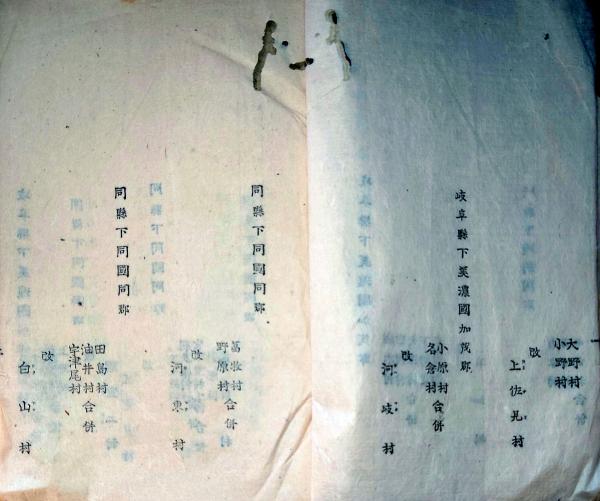 大野村
小野村
改
上佐見村
岐阜縣下美濃國加茂郡
小原村
名倉村合併
改
河岐村
同縣下同國同郡
葛牧村
野原村合併
改
河東村
同縣下同國同郡
田島村
油井村合併
宇津尾村
改
白山村